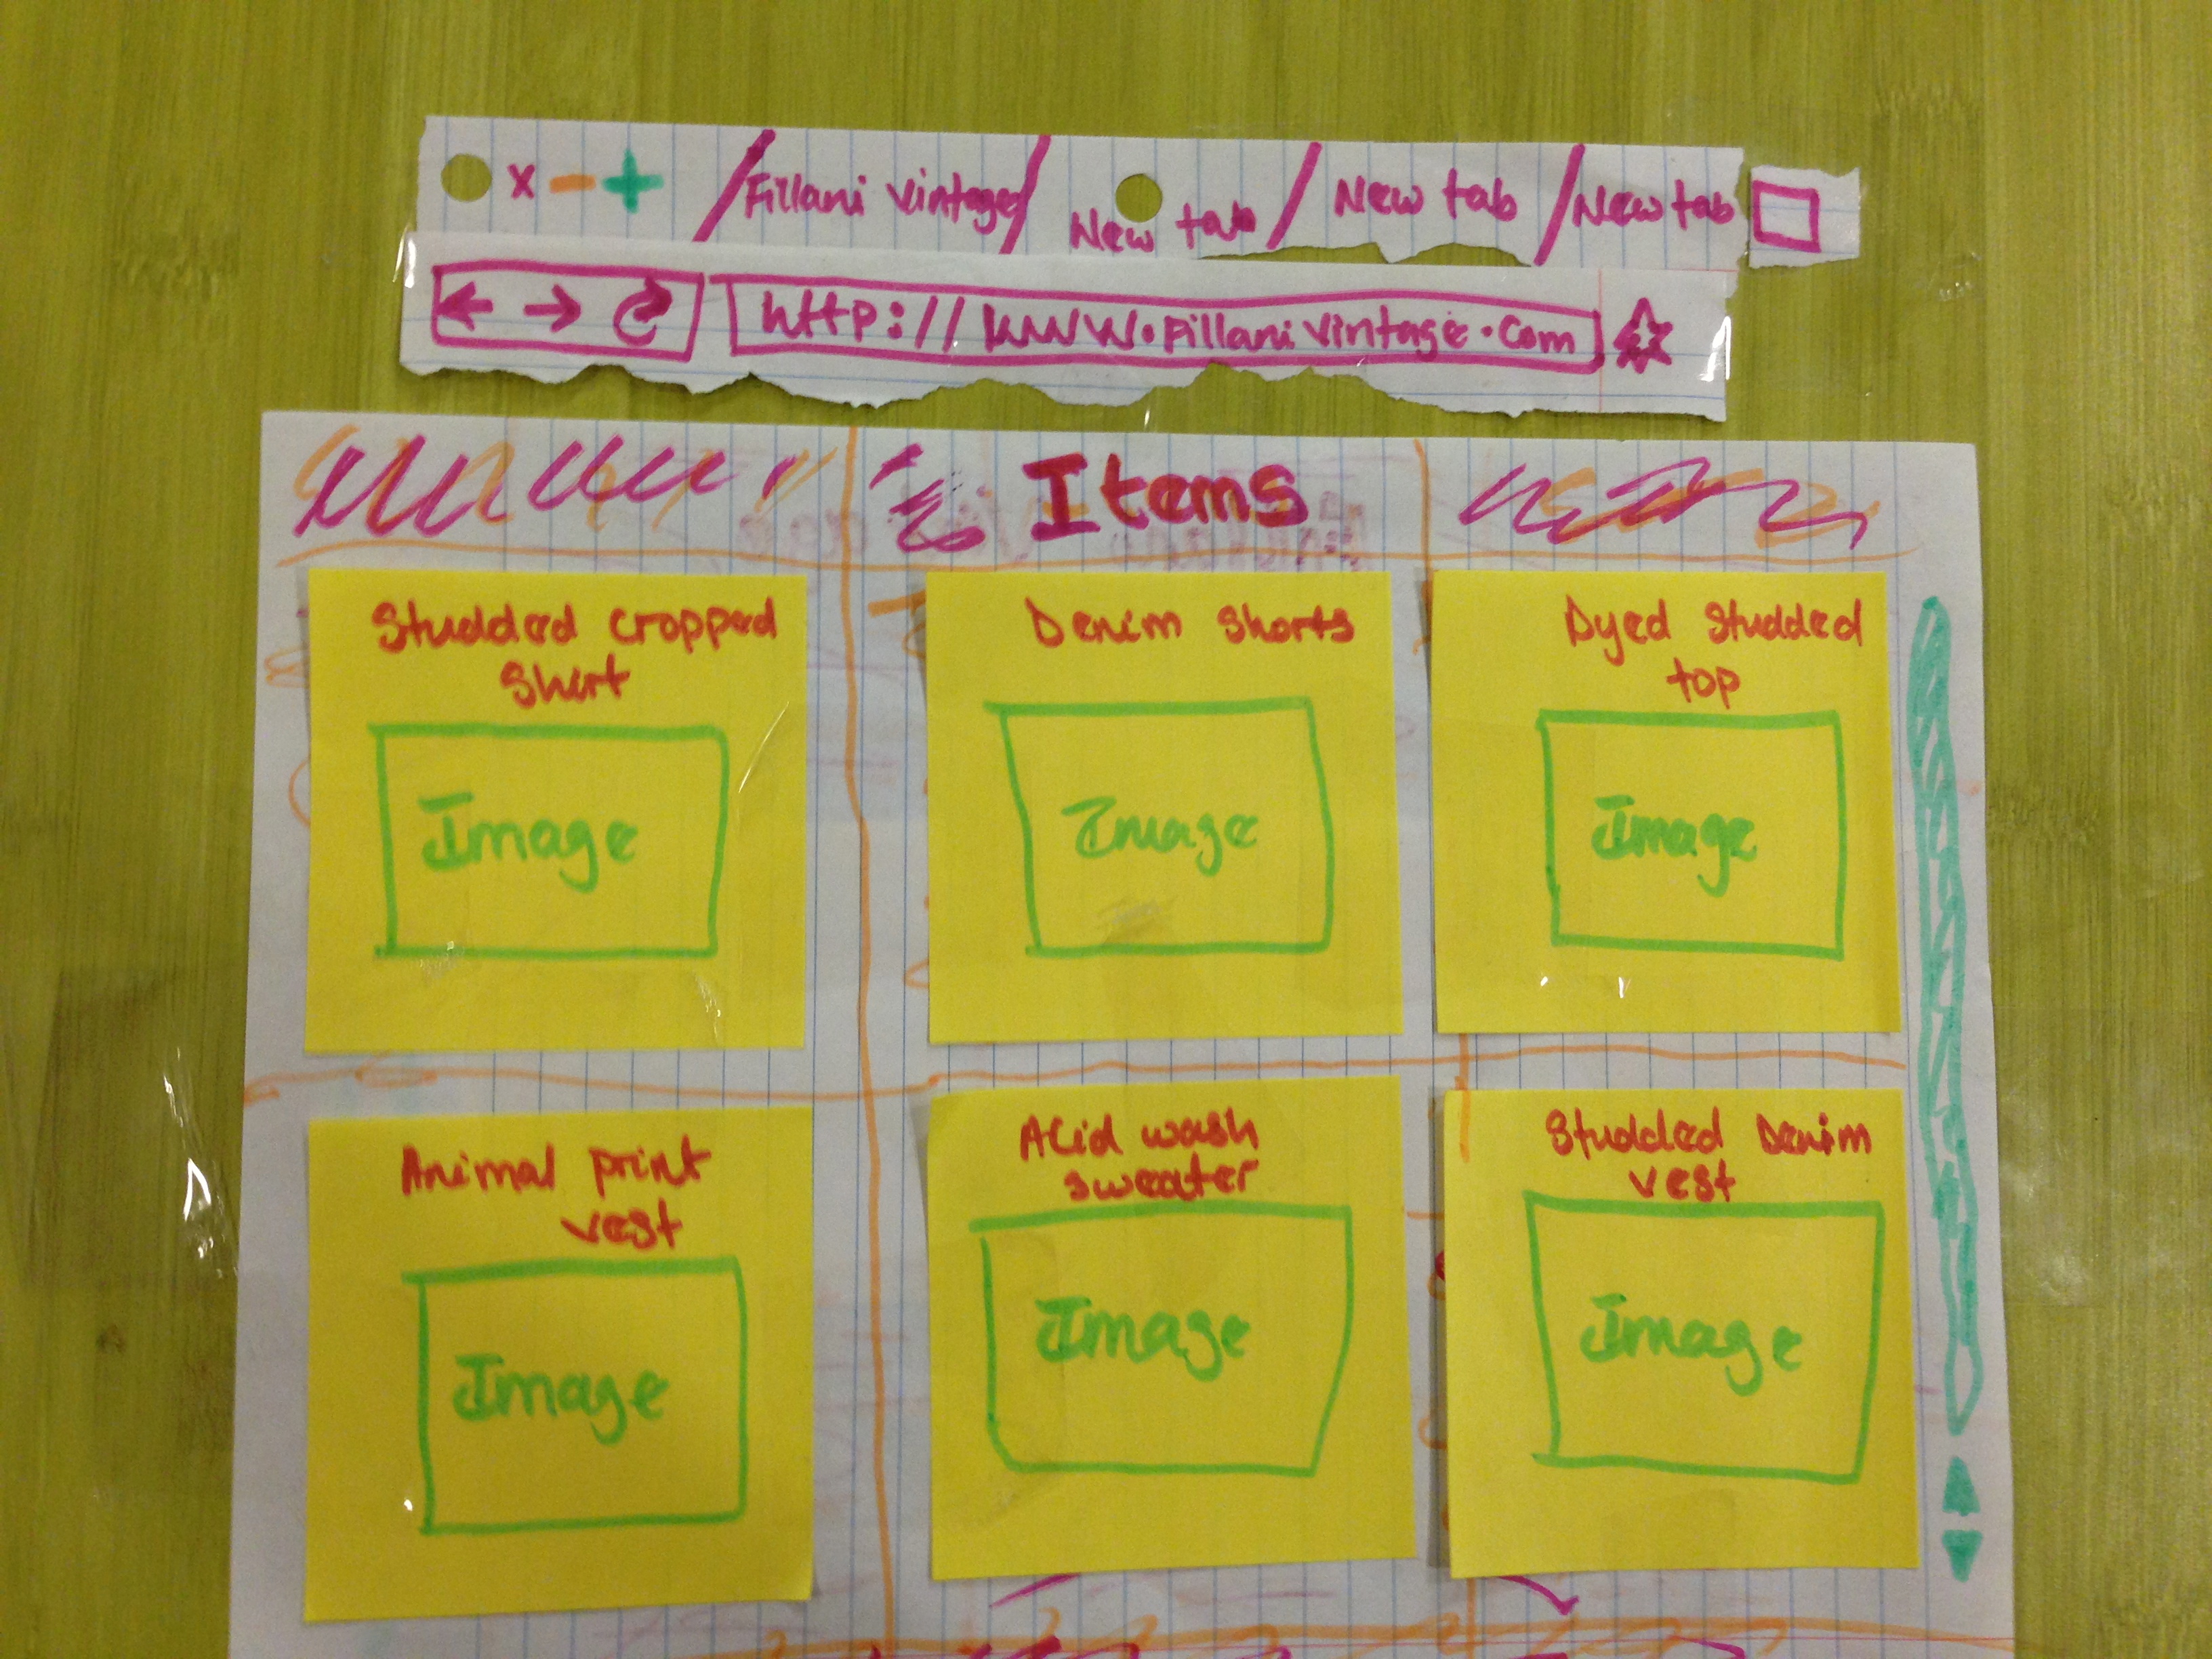 x - + / Fillani Vintage / New tab / New tab / New tab
http://www.fillanivintage.com
Items
Studded cropped
Shirt
Image
Denim shorts
Image
Dyed studded
top
Image
Animal print
vest
Image
Acid wash
sweater
Image
Studded Denim
vest
Image